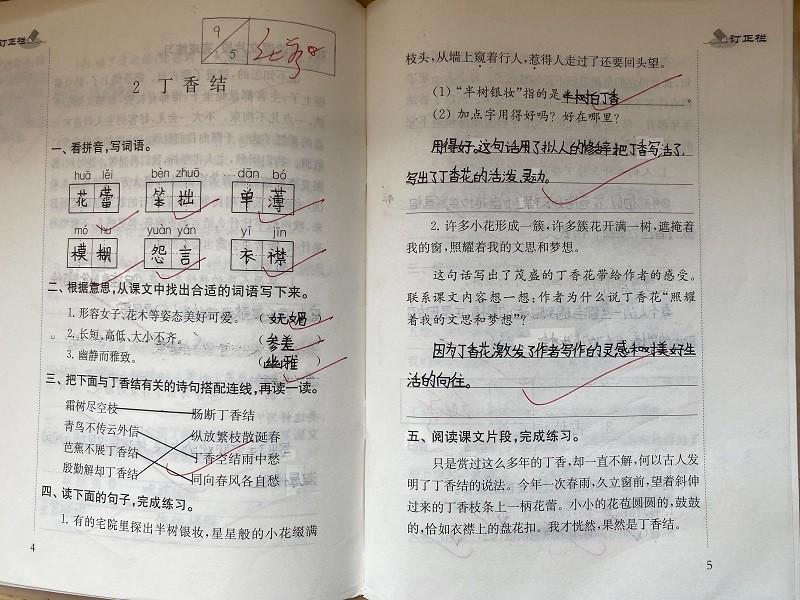 订正栏
9
5
2 丁香结
一、看拼音,写词语。
huā lěi bèn zhuō dān bó
花蕾 笨拙 单薄
mó hu yuàn yán yī jīn
模糊 怨言 衣襟
二、根据意思,从课文中找出合适的词语写下来。
1. 形容女子、花木等姿态美好可爱。 (妩媚)
2. 长短、高低、大小不齐。 (参差)
3. 幽静而雅致。 (幽雅)
三、把下面与丁香结有关的诗句搭配连线,再读一读。
霜树尽空枝 肠断丁香结
青鸟不传云外信 纵放繁枝散诞春
芭蕉不展丁香结 丁香空结雨中愁
殷勤解却丁香结 同向春风各自愁
四、读下面的句子,完成练习。
1. 有的宅院里探出半树银妆,星星般的小花缀满
4
订正栏
枝头,从墙上窥着行人,惹得人走过了还要回头望。
(1) “半树银妆”指的是半树白丁香。
(2) 加点字用得好吗? 好在哪里?
用得好。这句话用了拟人的修辞把丁香写活了,
写出了丁香花的活泼、灵动。
2. 许多小花形成一簇,许多簇花开满一树,遮掩着
我的窗,照耀着我的文思和梦想。
这句话写出了茂盛的丁香花带给作者的感受。
联系课文内容想一想:作者为什么说丁香花“照耀
着我的文思和梦想”?
因为丁香花激发了作者写作的灵感和对美好生
活的向往。
五、阅读课文片段,完成练习。
只是赏过这么多年的丁香,却一直不解,何以古人发
明了丁香结的说法。今年一次春雨,久立窗前,望着斜伸
过来的丁香枝条上一柄花蕾。小小的花苞圆圆的,鼓鼓
的,恰如衣襟上的盘花扣。我才恍然,果然是丁香结。
5